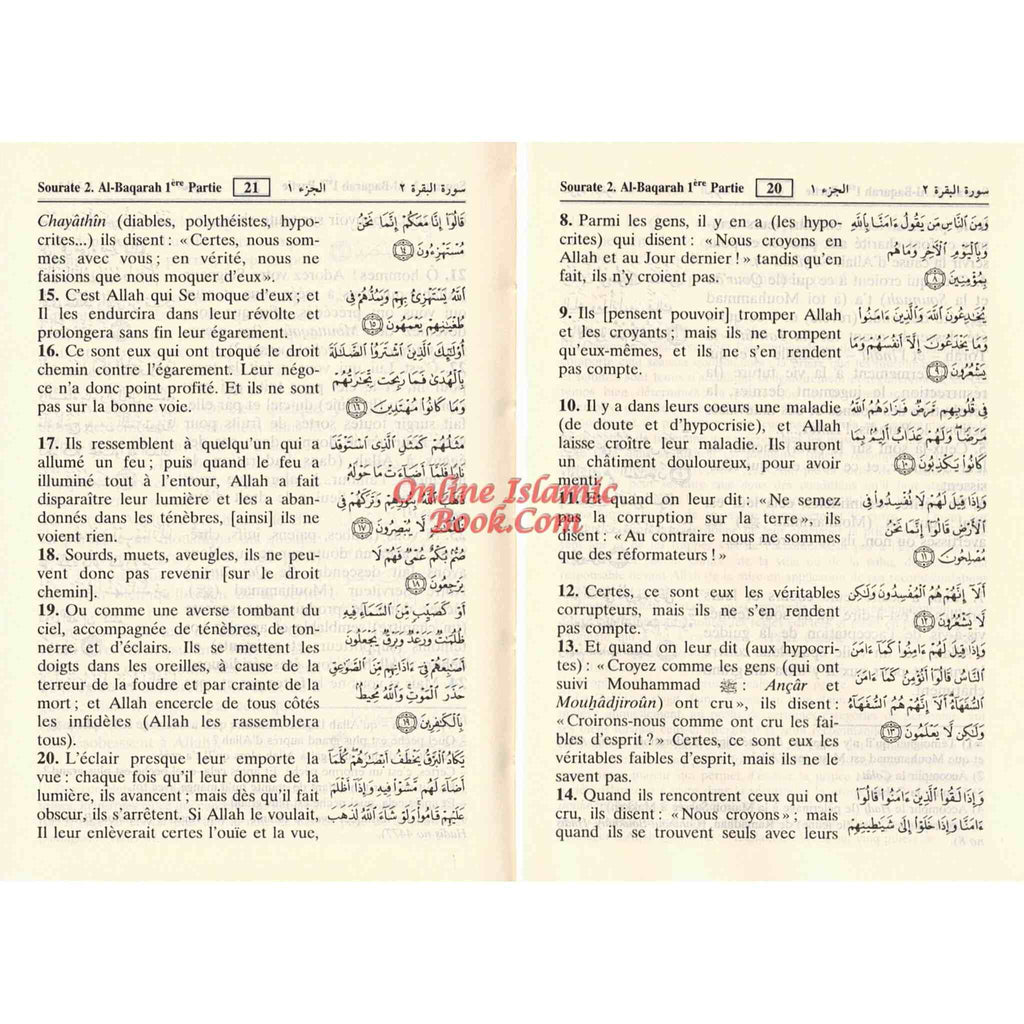 Sourate 2. Al-Baqarah 1ère Partie 20 الجزء ١ سورة البقرة ٢
8. Parmi les gens, il y en a (les hypo-
crites) qui disent : « Nous croyons en
Allah et au Jour dernier ! » tandis qu'en
fait, ils n'y croient pas.
9. Ils [pensent pouvoir] tromper Allah
et les croyants ; mais ils ne trompent
qu'eux-mêmes, et ils ne s'en rendent
pas compte.
10. Il y a dans leurs coeurs une maladie
(de doute et d'hypocrisie), et Allah
laisse croître leur maladie. Ils auront
un châtiment douloureux, pour avoir
menti.
11. Et quand on leur dit : « Ne semez
pas la corruption sur la terre », ils
disent : « Au contraire nous ne sommes
que des réformateurs ! »
12. Certes, ce sont eux les véritables
corrupteurs, mais ils ne s'en rendent
pas compte.
13. Et quand on leur dit (aux hypocri-
tes) : « Croyez comme les gens (qui ont
suivi Mouhammad ﷺ : Ançâr et
Mouhâdjiroûn) ont cru », ils disent :
« Croirons-nous comme ont cru les fai-
bles d'esprit ? » Certes, ce sont eux les
véritables faibles d'esprit, mais ils ne le
savent pas.
14. Quand ils rencontrent ceux qui ont
cru, ils disent : « Nous croyons » ; mais
quand ils se trouvent seuls avec leurs
وَمِنَ النَّاسِ مَن يَقُولُ ءَامَنَّا بِاللَّهِ
وَبِالْيَوْمِ الْآخِرِ وَمَا هُم
بِمُؤْمِنِينَ ٨
يُخَادِعُونَ اللَّهَ وَالَّذِينَ ءَامَنُوا
وَمَا يَخْدَعُونَ إِلَّا أَنفُسَهُمْ وَمَا
يَشْعُرُونَ ٩
فِي قُلُوبِهِم مَّرَضٌ فَزَادَهُمُ اللَّهُ
مَرَضًا وَلَهُمْ عَذَابٌ أَلِيمٌ بِمَا
كَانُوا يَكْذِبُونَ ١٠
وَإِذَا قِيلَ لَهُمْ لَا تُفْسِدُوا فِي
الْأَرْضِ قَالُوا إِنَّمَا نَحْنُ
مُصْلِحُونَ ١١
أَلَا إِنَّهُمْ هُمُ الْمُفْسِدُونَ وَلَكِن
لَّا يَشْعُرُونَ ١٢
وَإِذَا قِيلَ لَهُمْ ءَامِنُوا كَمَا ءَامَنَ
النَّاسُ قَالُوا أَنُؤْمِنُ كَمَا ءَامَنَ
السُّفَهَاءُ أَلَا إِنَّهُمْ هُمُ السُّفَهَاءُ
وَلَكِن لَّا يَعْلَمُونَ ١٣
وَإِذَا لَقُوا الَّذِينَ ءَامَنُوا قَالُوا
ءَامَنَّا وَإِذَا خَلَوْا إِلَى شَيَاطِينِهِمْ
Sourate 2. Al-Baqarah 1ère Partie 21 الجزء ١ سورة البقرة ٢
Chayâthîn (diables, polythéistes, hypo-
crites...) ils disent : « Certes, nous som-
mes avec vous ; en vérité, nous ne
faisions que nous moquer d'eux ».
15. C'est Allah qui Se moque d'eux ; et
Il les endurcira dans leur révolte et
prolongera sans fin leur égarement.
16. Ce sont eux qui ont troqué le droit
chemin contre l'égarement. Leur négo-
ce n'a donc point profité. Et ils ne sont
pas sur la bonne voie.
17. Ils ressemblent à quelqu'un qui a
allumé un feu ; puis quand le feu a
illuminé tout à l'entour, Allah a fait
disparaître leur lumière et les a aban-
donnés dans les ténèbres, [ainsi] ils ne
voient rien.
18. Sourds, muets, aveugles, ils ne peu-
vent donc pas revenir [sur le droit
chemin].
19. Ou comme une averse tombant du
ciel, accompagnée de ténèbres, de ton-
nerre et d'éclairs. Ils se mettent les
doigts dans les oreilles, à cause de la
terreur de la foudre et par crainte de la
mort ; et Allah encercle de tous côtés
les infidèles (Allah les rassemblera
tous).
20. L'éclair presque leur emporte la
vue : chaque fois qu'il leur donne de la
lumière, ils avancent ; mais dès qu'il fait
obscur, ils s'arrêtent. Si Allah le voulait,
Il leur enlèverait certes l'ouïe et la vue,
قَالُوا إِنَّا مَعَكُمْ إِنَّمَا نَحْنُ
مُسْتَهْزِءُونَ ١٤
اللَّهُ يَسْتَهْزِئُ بِهِمْ وَيَمُدُّهُمْ فِي
طُغْيَانِهِمْ يَعْمَهُونَ ١٥
أُولَٰئِكَ الَّذِينَ اشْتَرَوُا الضَّلَالَةَ
بِالْهُدَىٰ فَمَا رَبِحَت تِّجَارَتُهُمْ
وَمَا كَانُوا مُهْتَدِينَ ١٦
مَثَلُهُمْ كَمَثَلِ الَّذِي اسْتَوْقَدَ
نَارًا فَلَمَّا أَضَاءَتْ مَا حَوْلَهُ
ذَهَبَ اللَّهُ بِنُورِهِمْ وَتَرَكَهُمْ فِي
ظُلُمَاتٍ لَّا يُبْصِرُونَ ١٧
صُمٌّ بُكْمٌ عُمْيٌ فَهُمْ لَا
يَرْجِعُونَ ١٨
أَوْ كَصَيِّبٍ مِّنَ السَّمَاءِ فِيهِ
ظُلُمَاتٌ وَرَعْدٌ وَبَرْقٌ يَجْعَلُونَ
أَصَابِعَهُمْ فِي ءَاذَانِهِم مِّنَ الصَّوَاعِقِ
حَذَرَ الْمَوْتِ وَاللَّهُ مُحِيطٌ
بِالْكَافِرِينَ ١٩
يَكَادُ الْبَرْقُ يَخْطَفُ أَبْصَارَهُمْ كُلَّمَا
أَضَاءَ لَهُم مَّشَوْا فِيهِ وَإِذَا أَظْلَمَ
عَلَيْهِمْ قَامُوا وَلَوْ شَاءَ اللَّهُ لَذَهَبَ
Online Islamic
Book.Com